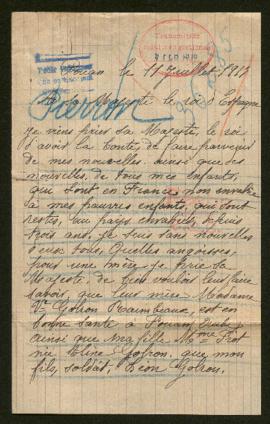 le 11 Juillet 1917
Pierron
Sa Majesté le roi d'Espagne
je viens prier Sa Majesté, le roi
d'avoir la bonté, de faire parvenir
de mes nouvelles, ainsi que des
nouvelles, de tous mes enfants,
qui sont en France non envahie
à mes pauvres enfants, qui sont
restés, au pays envahis, depuis
trois ans, je suis sans nouvelles
d'eux tous, Quelles angoisses,
pour une mère, je prie Sa
Majesté, de bien vouloir leur faire
savoir, que leur mère Madame
Vve Golron Raimbeaux, est en
bonne santé à
ainsi que ma fille Mme
née Golron, que mon
fils, soldat, Léon Golron.